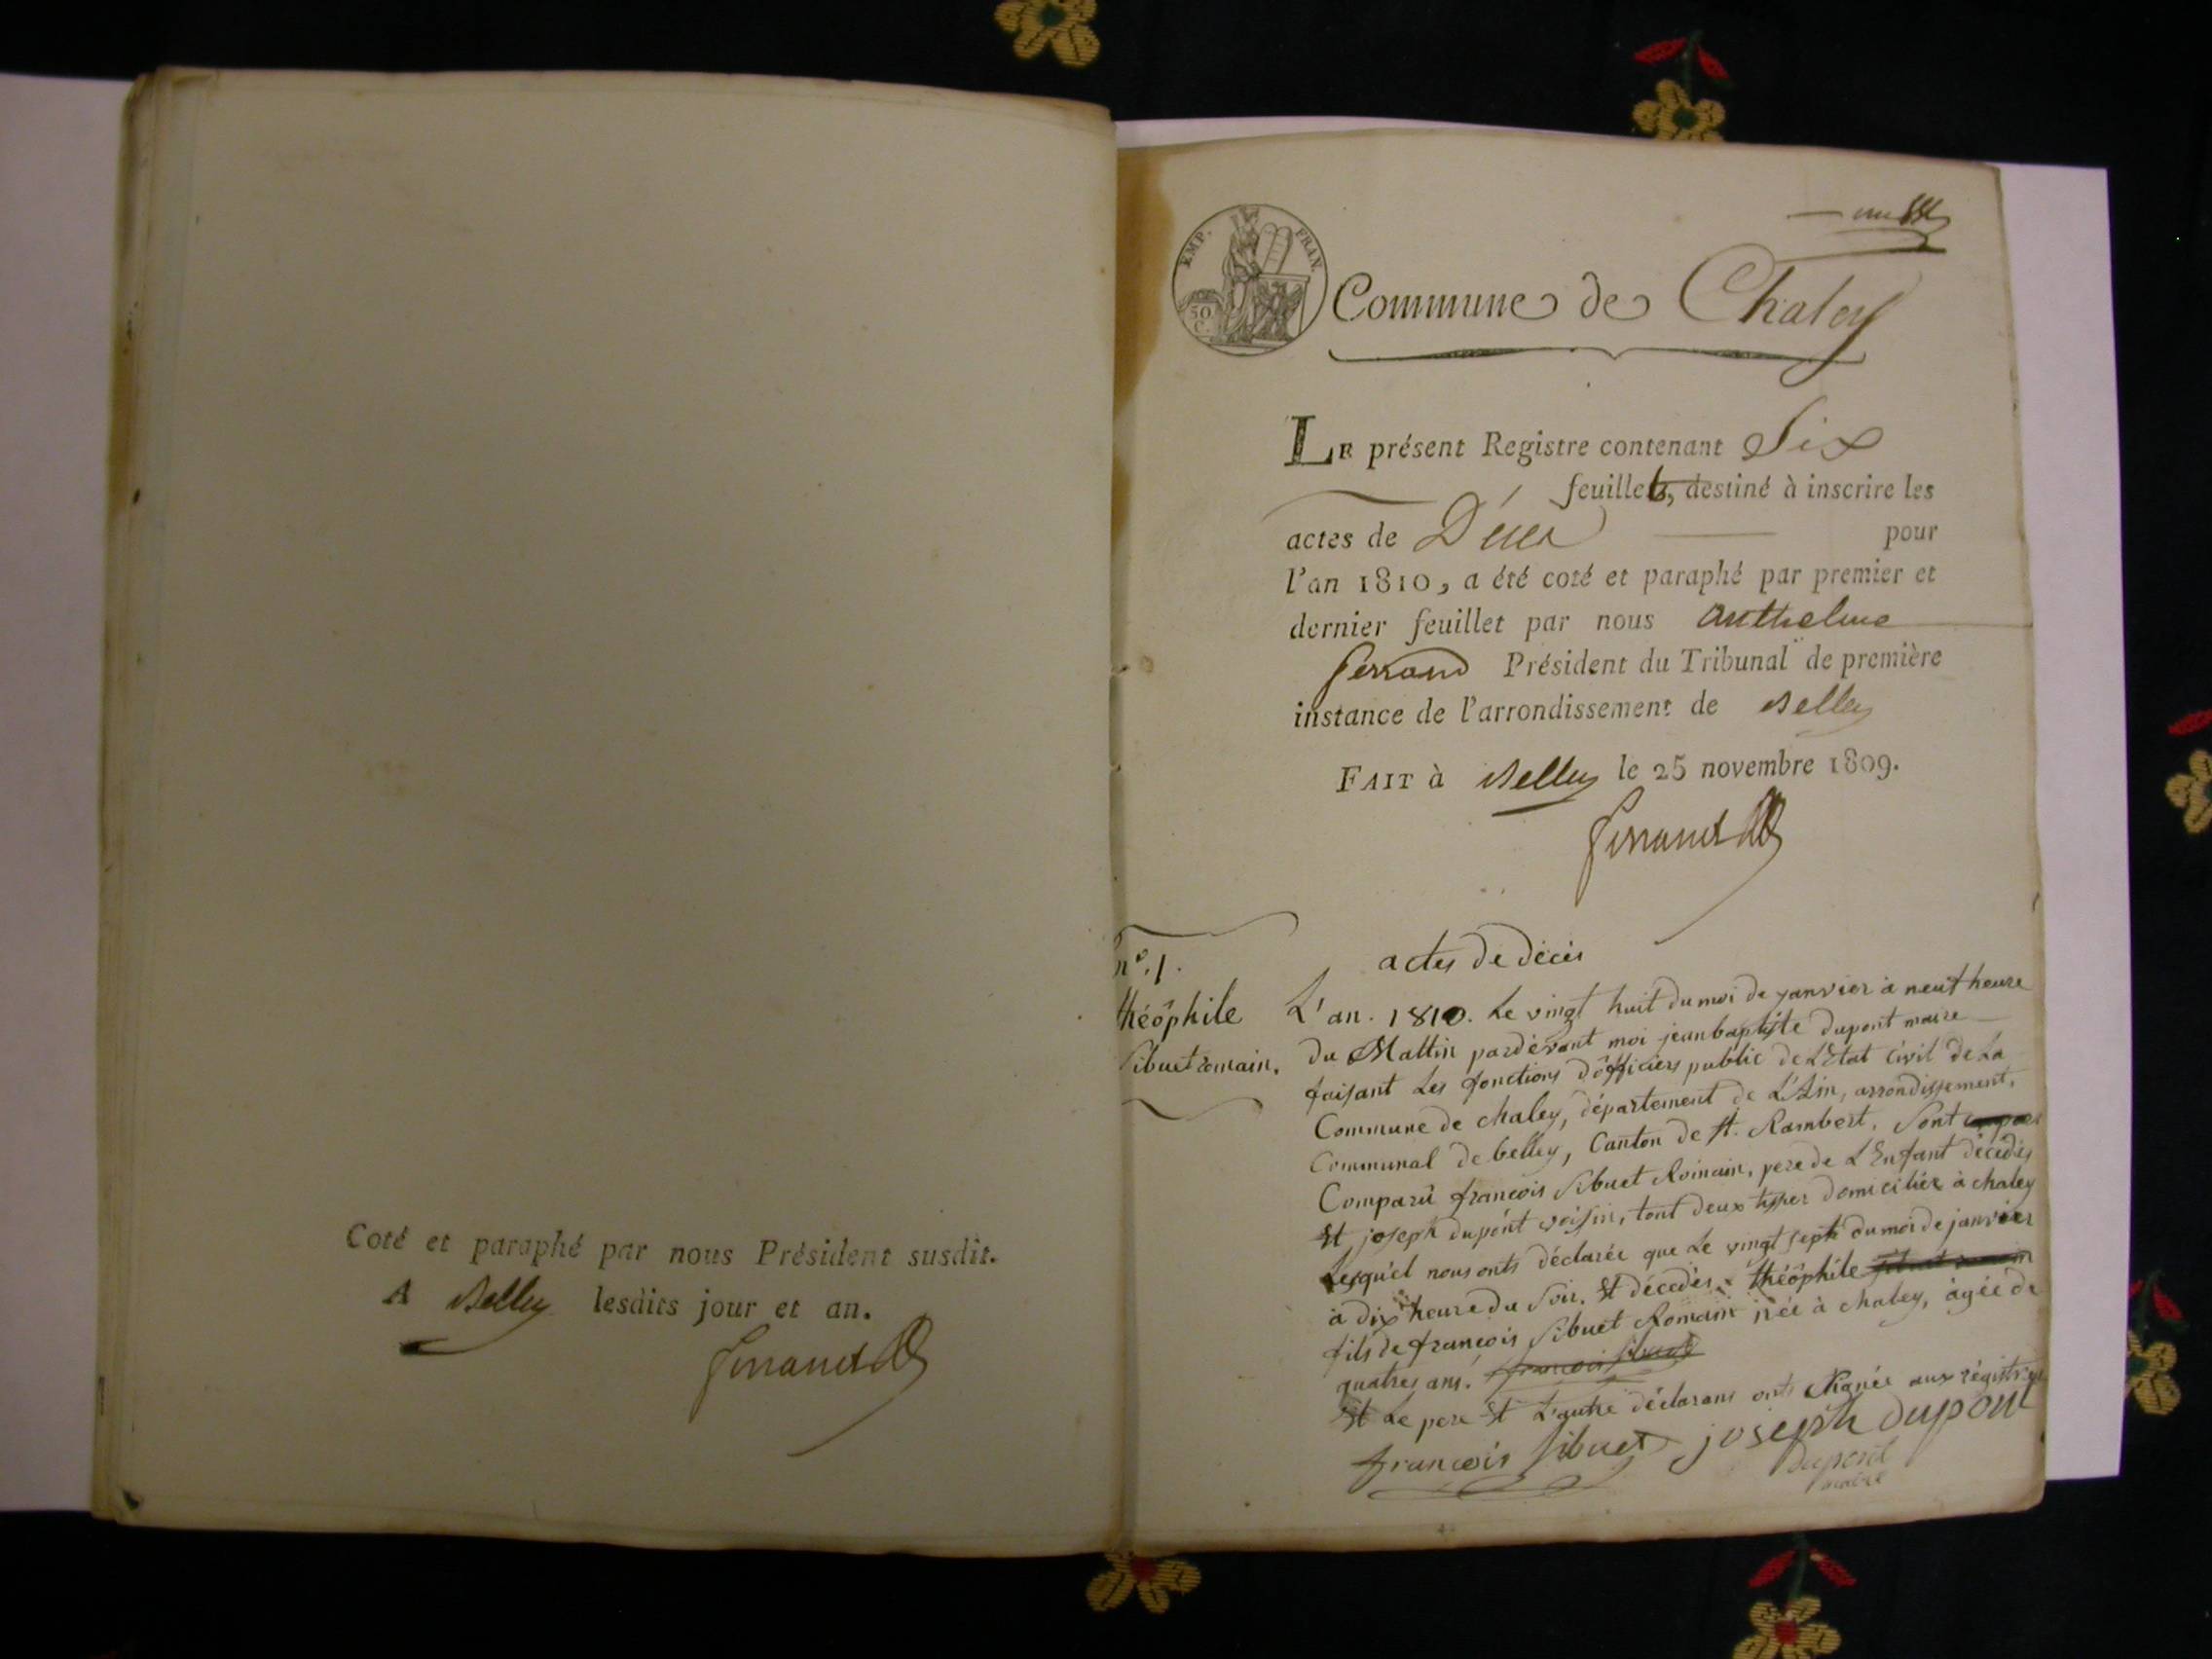 Coté et paraphé par nous Président susdit.
A Belley lesdits jour et an.
Ferrand
EMP. FRAN.
50
C.
un
Commune de Chaley
LE présent Registre contenant Six
feuillets, destiné à inscrire les
actes de Décès pour
l'an 1810, a été coté et paraphé par premier et
dernier feuillet par nous Anthelme
ferrand Président du Tribunal de première
instance de l'arrondissement de Belley
FAIT à Belley le 25 novembre 1809.
Ferrand
actes de décès
n°. 1.
théophile
Sibuet romain.
L'an. 1810. Le vingt huit du moi de janvier à neuf heure
du Mattin pardevant moi jean baptiste dupont maire
faisant Les fonctions d'officiers public de L'Etat Civil de La
Commune de chaley, département de L'Ain, arrondissement,
Communal de belley, Canton de st. Rambert, Sont
Comparû francois Sibuet Romain, pere de L'Enfant décédés
Et joseph dupont voisin, tout deux domiciliéz à chaley
Lesquel nous onts déclarée que Le vingt sept du moi de janvier
à dix heure du Soir, Et décedès théophile
fils de francois Sibuet Romain née à chaley, âgée de
quatres ans. francois Sibuet
Et Le pere Et L'autre déclarans onts Signée aux régistres
francois Sibuet joseph dupont
dupont
maire